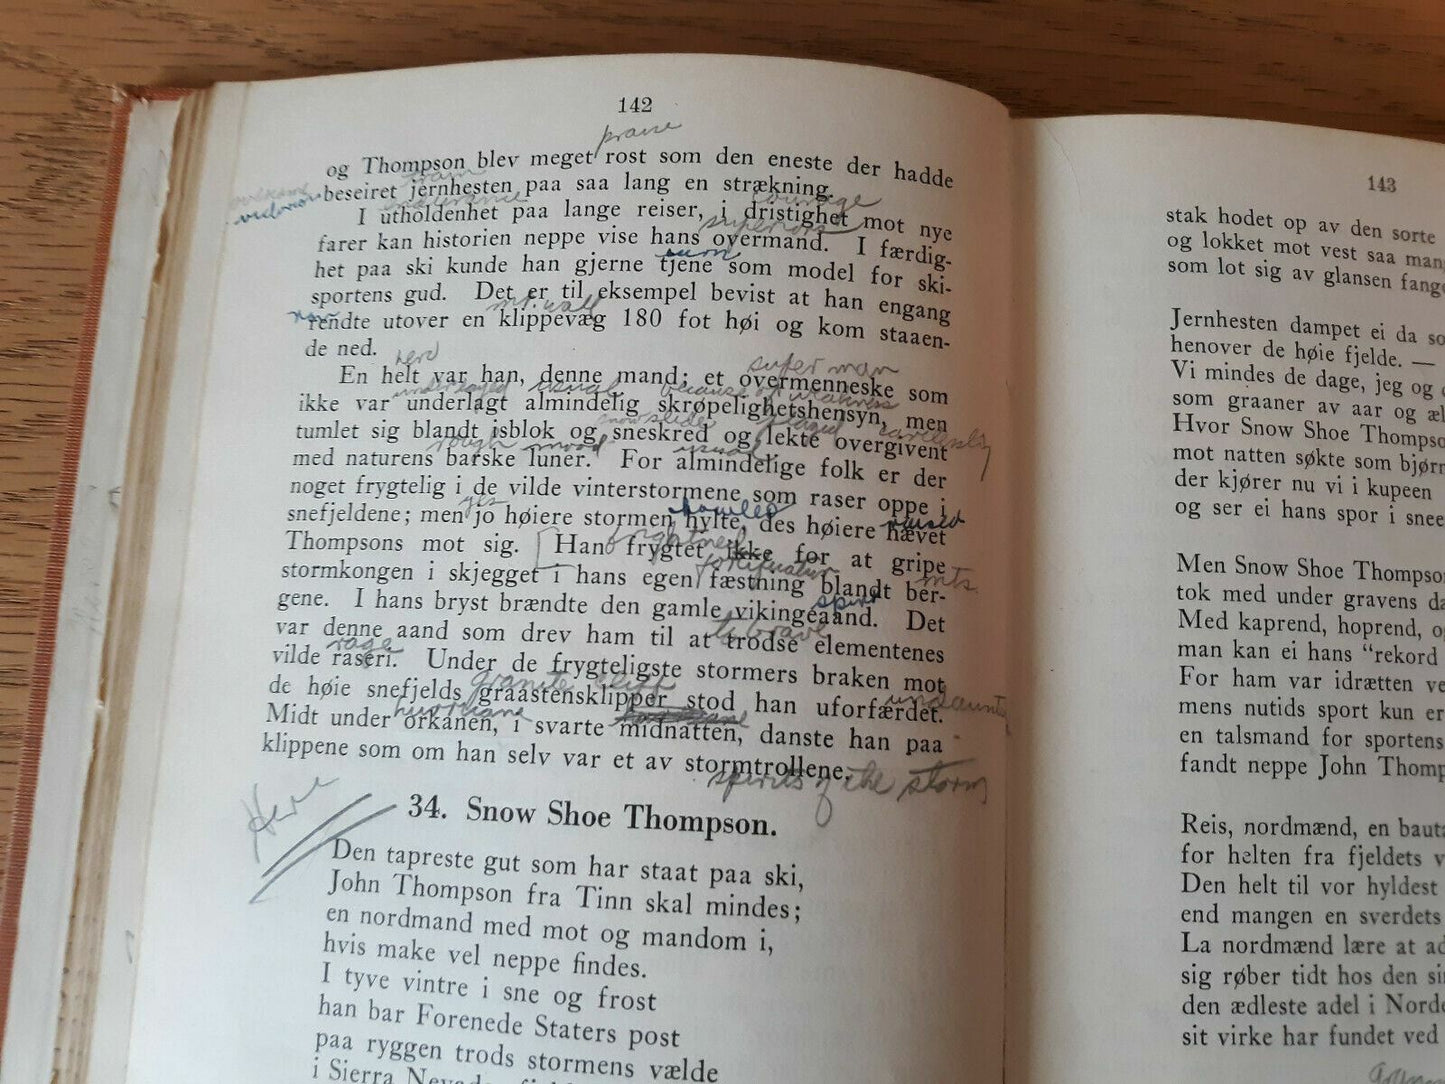 142
praise
og Thompson blev meget rost som den eneste der hadde
train
beseiret jernhesten paa saa lang en strækning.
victorious
endurance courage
I utholdenhet paa lange reiser, i dristighet mot nye
superiors
farer kan historien neppe vise hans overmand. I færdig-
het paa ski kunde han gjerne tjene som model for ski-
sportens gud. Det er til eksempel bevist at han engang
mt. wall
rendte utover en klippevæg 180 fot høi og kom staaen-
de ned.
hero
superman
En helt var han, denne mand; et overmenneske som
usual because of weakness
ikke var underlagt almindelig skrøpelighetshensyn, men
snowslides played carelessly
tumlet sig blandt isblok og sneskred og lekte overgivent
rough mood usual
med naturens barske luner. For almindelige folk er der
noget frygtelig i de vilde vinterstormene som raser oppe i
yes howled raised
snefjeldene; men jo høiere stormen hylte, des høiere hævet
Thompsons mot sig. Han frygtet ikke for at gripe
fortification mts.
stormkongen i skjegget i hans egen fæstning blandt ber-
spirit
gene. I hans bryst brændte den gamle vikingeaand. Det
to brave
var denne aand som drev ham til at trodse elementenes
rage
vilde raseri. Under de frygteligste stormers braken mot
granite cliff
de høie snefjelds graastensklipper stod han uforfærdet.
hurricane
Midt under orkanen, i svarte midnatten, danste han paa
klippene som om han selv var et av stormtrollene.
spirits of the storm
Here
34. Snow Shoe Thompson.
Den tapreste gut som har staat paa ski,
John Thompson fra Tinn skal mindes;
en nordmand med mot og mandom i,
hvis make vel neppe findes.
I tyve vintre i sne og frost
han bar Forenede Staters post
paa ryggen trods stormens vælde
i Sierra
143
stak hodet op av den sorte
og lokket mot vest saa
som lot sig av glansen
Jernhesten dampet ei da
henover de høie fjelde. —
Vi mindes de dage, jeg og
som graaner av aar og
Hvor Snow Shoe
mot natten søkte som
der kjører nu vi i kupeen
og ser ei hans spor i
Men Snow Shoe
tok med under gravens
Med kaprend, hoprend,
man kan ei hans "rekord
For ham var idrætten
mens nutids sport kun
en talsmand for
fandt neppe John
Reis, nordmænd, en
for helten fra fjeldets
Den helt til vor hyldest
end mangen en
La nordmænd lære at
sig røber tidt hos den
den ædleste adel i
sit virke har fundet ved